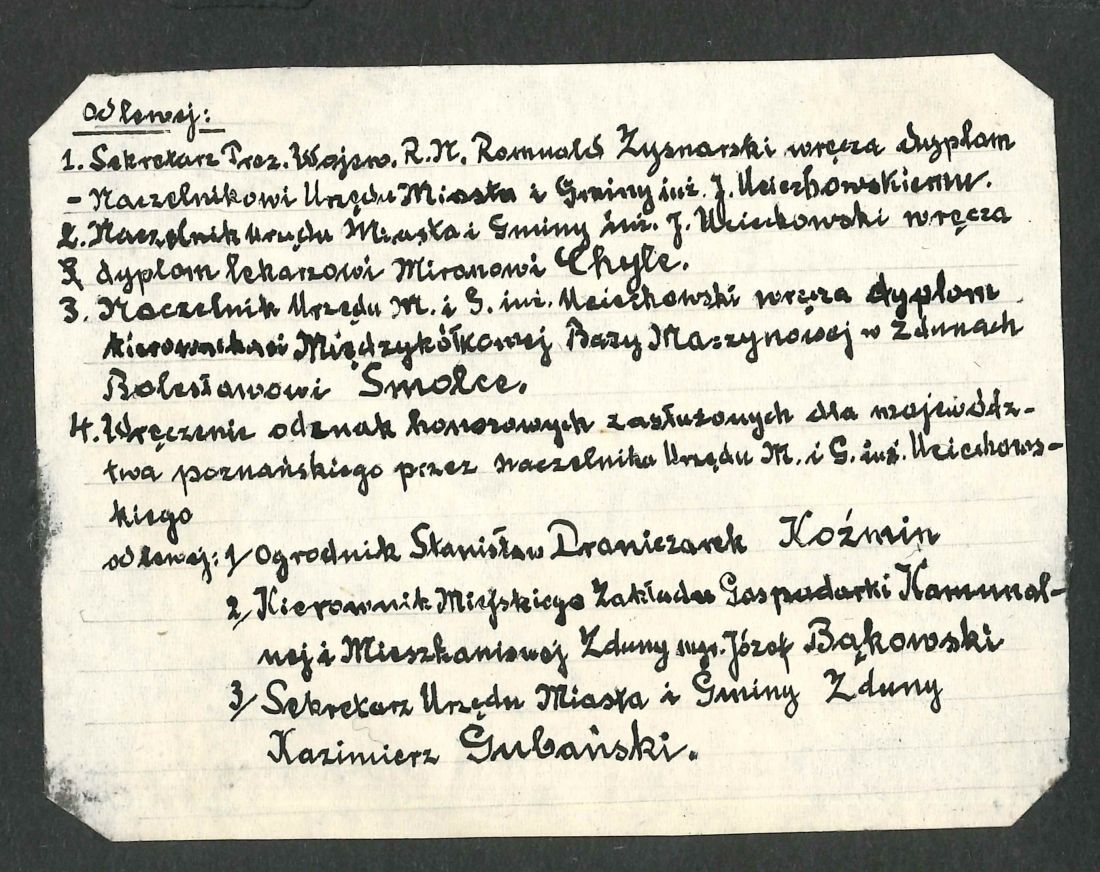 od lewej:
1. Sekretarz Prez. Wojew. R.N. Romuald Zysnarski wręcza dyplom
- Naczelnikowi Urzędu Miasta i Gminy inż. J. Uciechowskiemu.
2. Naczelnik Urzędu Miasta i Gminy inż. J. Uciechowski wręcza
dyplom lekarzowi Mironowi Chyle.
3. Naczelnik Urzędu M. i G. inż. Uciechowski wręcza dyplom
kierownikowi Międzykółkowej Bazy Maszynowej w Zdunach
Bolesławowi Smolce.
4. Wręczenie odznak honorowych zasłużonych dla wojewódz-
twa poznańskiego przez naczelnika Urzędu M. i G. inż. Uciechows-
kiego
od lewej: 1/ Ogrodnik Stanisław Draniczarek Koźmin
2/ Kierownik Miejskiego Zakładu Gospodarki Komunal-
nej i Mieszkaniowej Zduny mgr. Józef Bąkowski
3/ Sekretarz Urzędu Miasta i Gminy Zduny
Kazimierz Gubański.